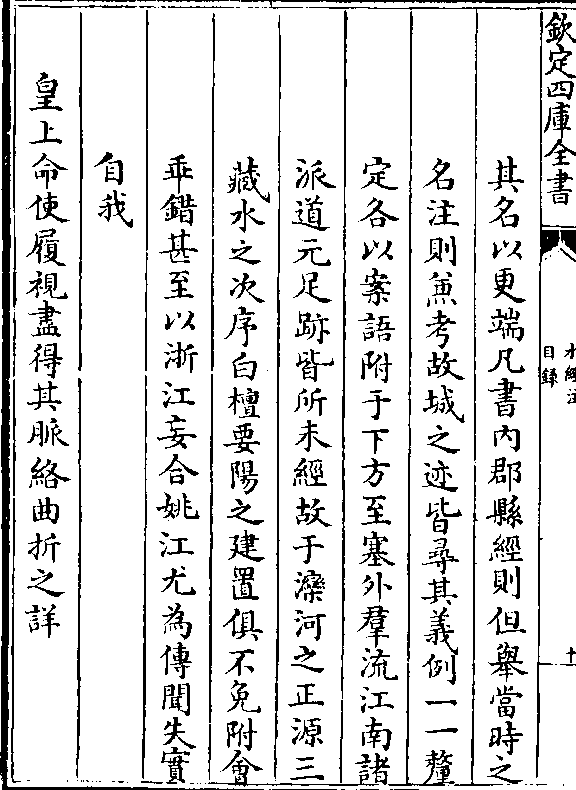 欽定四庫全書
水經注
目録
十
其名以更端凡書内郡縣經則但舉當時之
名注則兼考故城之迹皆尋其義例一一釐
定各以案語附于下方至塞外羣流江南諸
派道元足跡皆所未經故于灤河之正源三
藏水之次序白檀要陽之建置俱不免附會
乖錯甚至以浙江妄合姚江尤為傳聞失實
自我
皇上命使履視盡得其脈絡曲折之詳